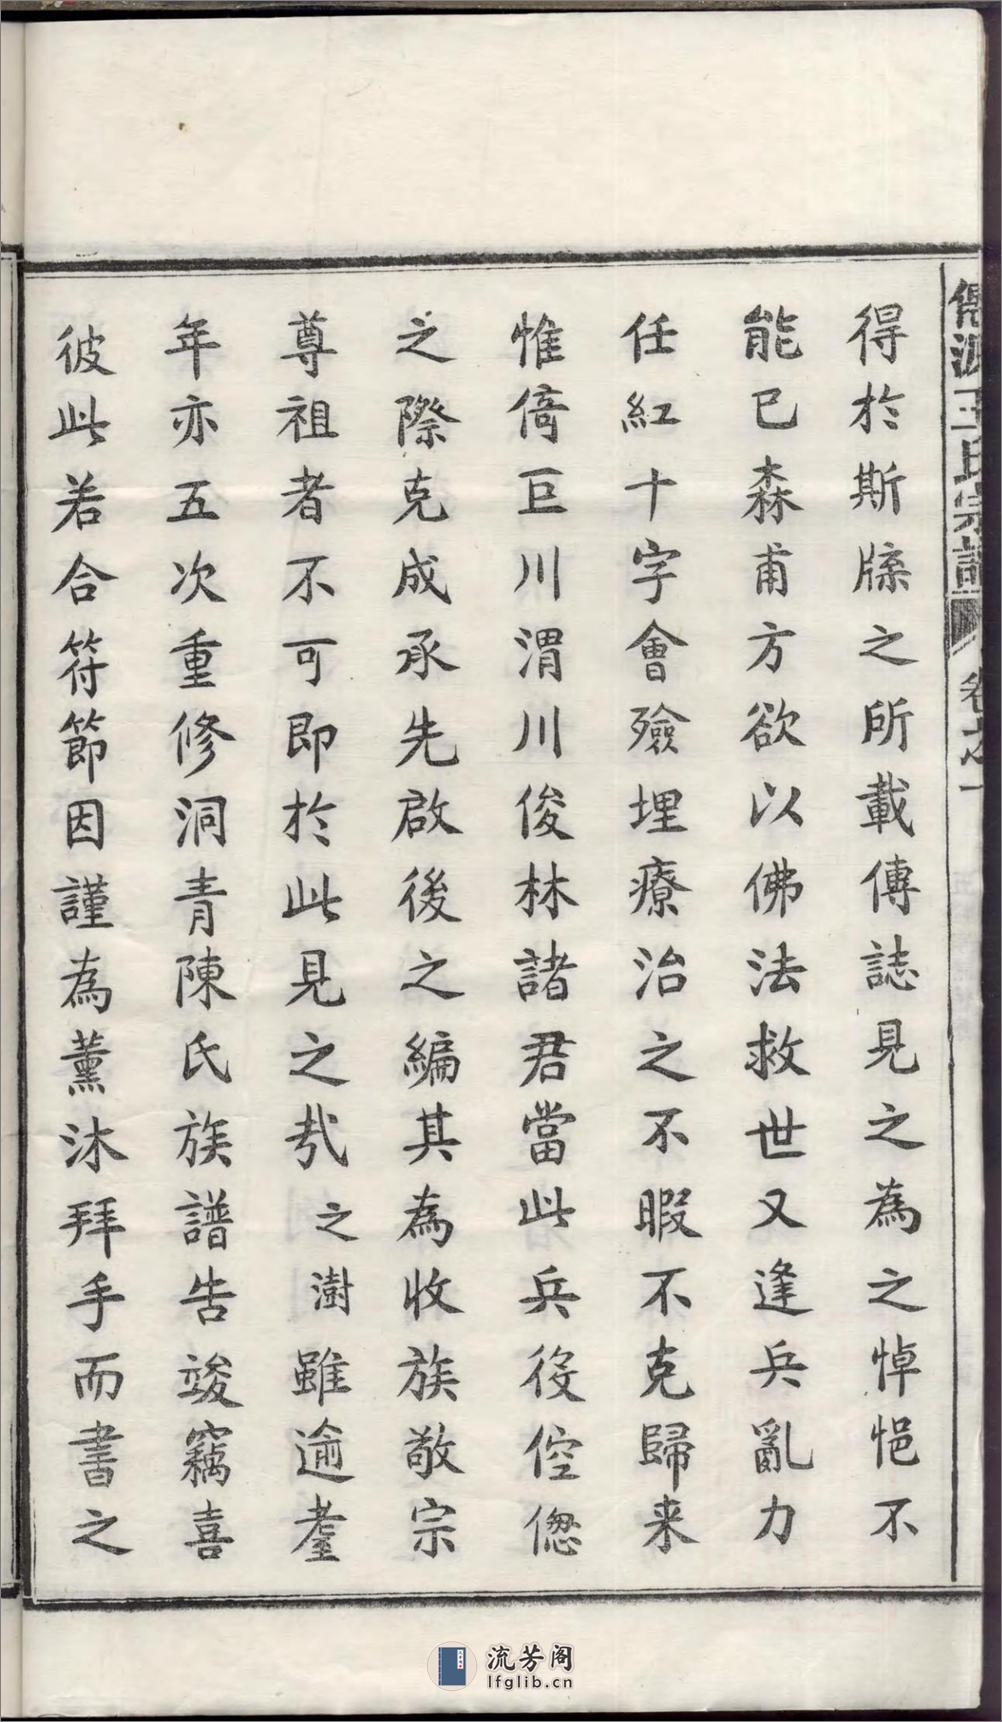 王氏宗譜 卷之一
得於斯牒之所載傳誌見之為之悼悒不
能已森甫方欲以佛法救世又逢兵亂力
任紅十字會殮埋療治之不暇不克歸来
惟倚巨川渭川俊林諸君當此兵役倥偬
之際克成承先啟後之編其為收族敬宗
尊祖者不可即於此見之㢤之澍雖逾耋
年亦五次重修洞青陳氏族譜告竣竊喜
彼此若合符節因謹為薰沐拜手而書之
流芳阁
lfglib.cn